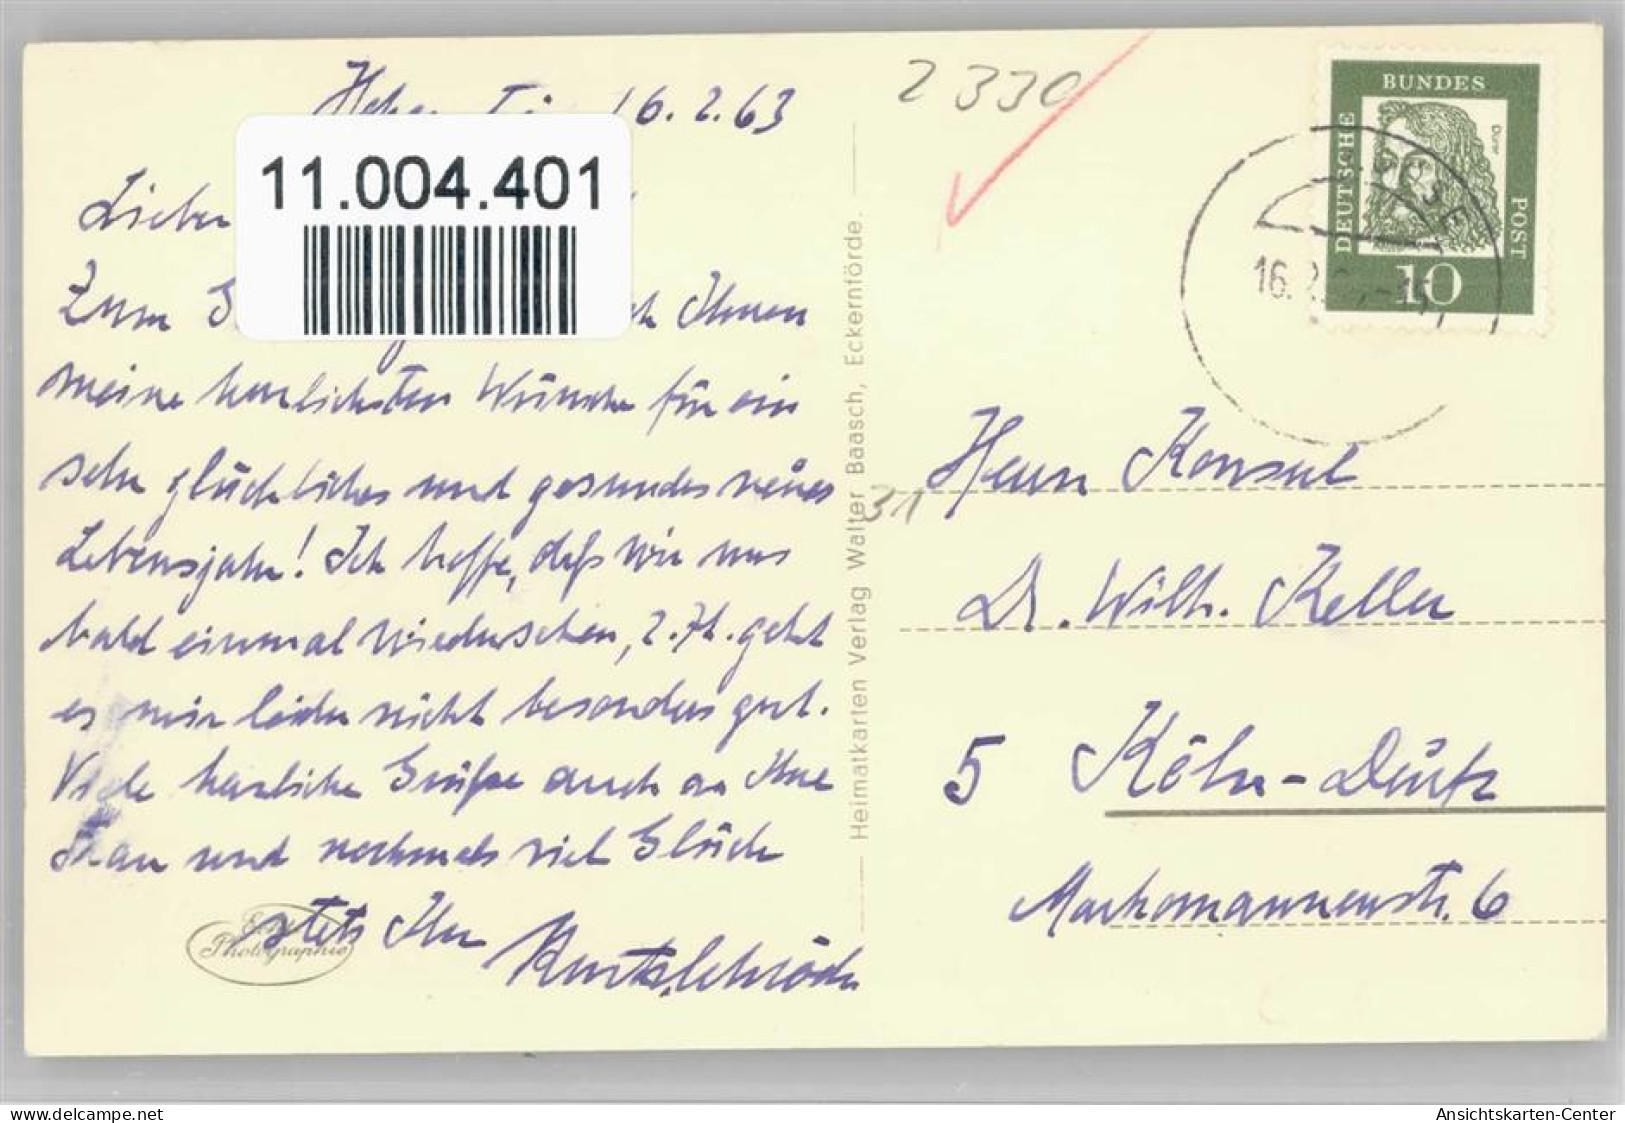 16.2.63
2330
11.004.401
Lieber
Zum Ihnen
meine herzlichsten Wünsche für ein
sehr glückliches und gesundes neues
Lebensjahr! Ich hoffe, daß wir uns
bald einmal wiedersehen, z.Zt. geht
es mir leider nicht besonders gut.
Viele herzliche Grüße auch an Ihre
Frau und nochmals viel Glück
stets Ihr
Photographie
Heimatkarten Verlag Walter Baasch, Eckernförde.
DEUTSCHE BUNDES POST
Dürer
10
16.
31
Herrn Konsul
Dr. Wilh. Keller
5 Köln-Deutz
Markomannenstr. 6
the-delcampe.net
Ansichtskarten-Center